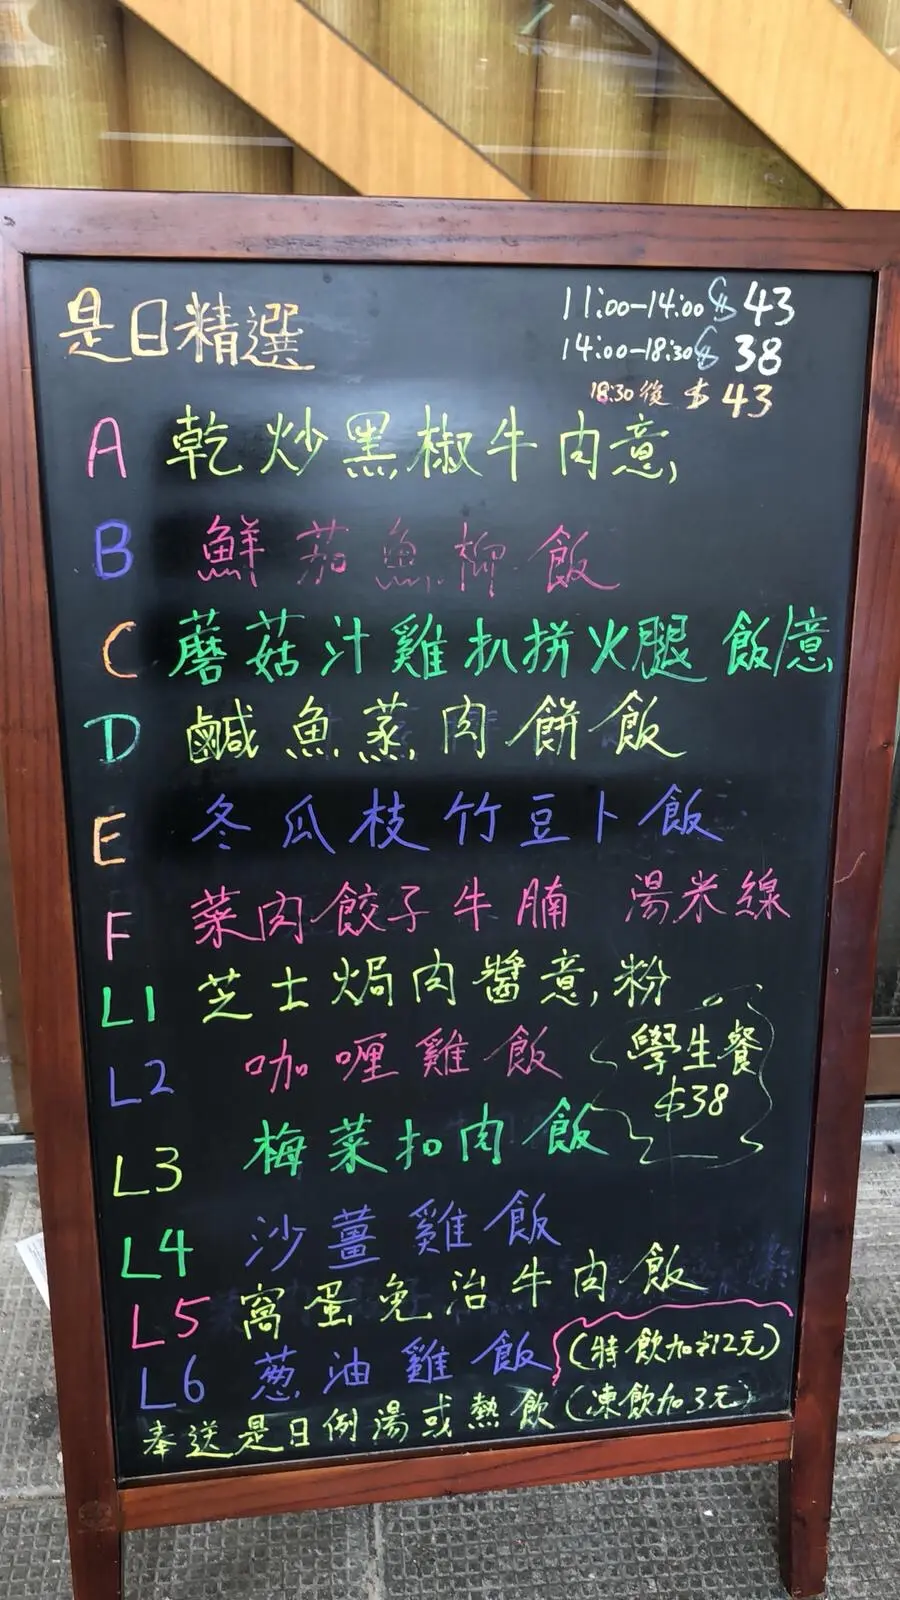 是日精選
11:00-14:00 $43
14:00-18:30 $38
18:30後 $43
A 乾炒黑椒牛肉意,
B 鮮茄魚柳飯
C 蘑菇汁雞扒拼火腿 飯/意
D 鹹魚蒸肉餅飯
E 冬瓜枝竹豆卜飯
F 菜肉餃子牛腩 湯米線
L1 芝士焗肉醬意,粉
L2 咖喱雞飯
學生餐
$38
L3 梅菜扣肉飯
L4 沙薑雞飯
L5 窩蛋免治牛肉飯
L6 葱油雞飯 (特飲加$12元)
奉送是日例湯或熱飲(凍飲加3元)